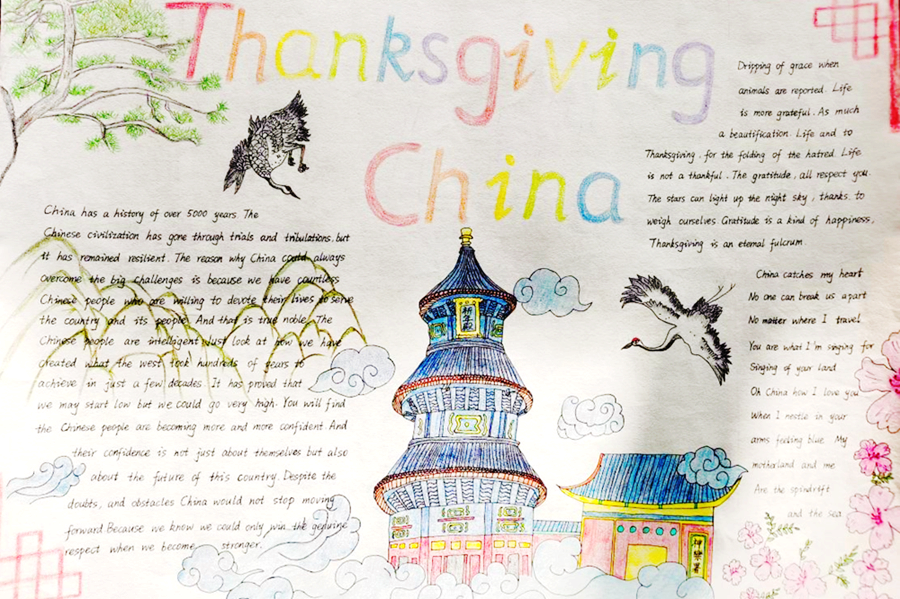 Thanksgiving
China
China has a history of over 5000 years The
Chinese civilization has gone through trials and tribulations, but
it has remained resilient. The reason why China could always
overcome the big challenges is because we have countless
Chinese people who are willing to devote their lives to serve
the country and its people. And that is true noble. The
Chinese people are intelligent Just look at how we have
created what the west took hundreds of years to
achieve in just a few decades. It has proved that
we may start low but we could go very high. You will find
the Chinese people are becoming more and more confident. And
their confidence is not just about themselves but also
about the future of this country. Despite the
doubts, and obstacles China would not stop moving
forward. Because we know we could only win the genuine
respect when we become stronger.
Dripping of grace when
animals are reported. Life
is more grateful. As much
a beautification. Life and to
Thanksgiving, for the folding of the hatred. Life
is not a thankful. The gratitude, all respect you.
The stars can light up the night sky, thanks, to
weigh ourselves Gratitude is a kind of happiness,
Thanksgiving is an eternal fulcrum
China catches my heart
No one can break us apart
No matter where I travel
You are what I'm singing for
Singing of your land
Oh China how I love you
When I nestle in your
arms feeling blue. My
motherland and me
Are the spindrift
and the sea
祈年殿
神樂署